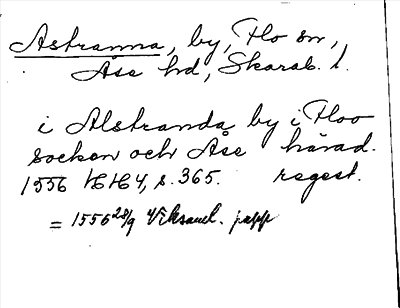 Astranna, by, Flo sn,
Åse hd, Skarab. l.
i Alstranda by i Floo
socken och Åse härad.
1556 HH 4, s. 365. regest.
= 1556 28/9 Viksaml. papp